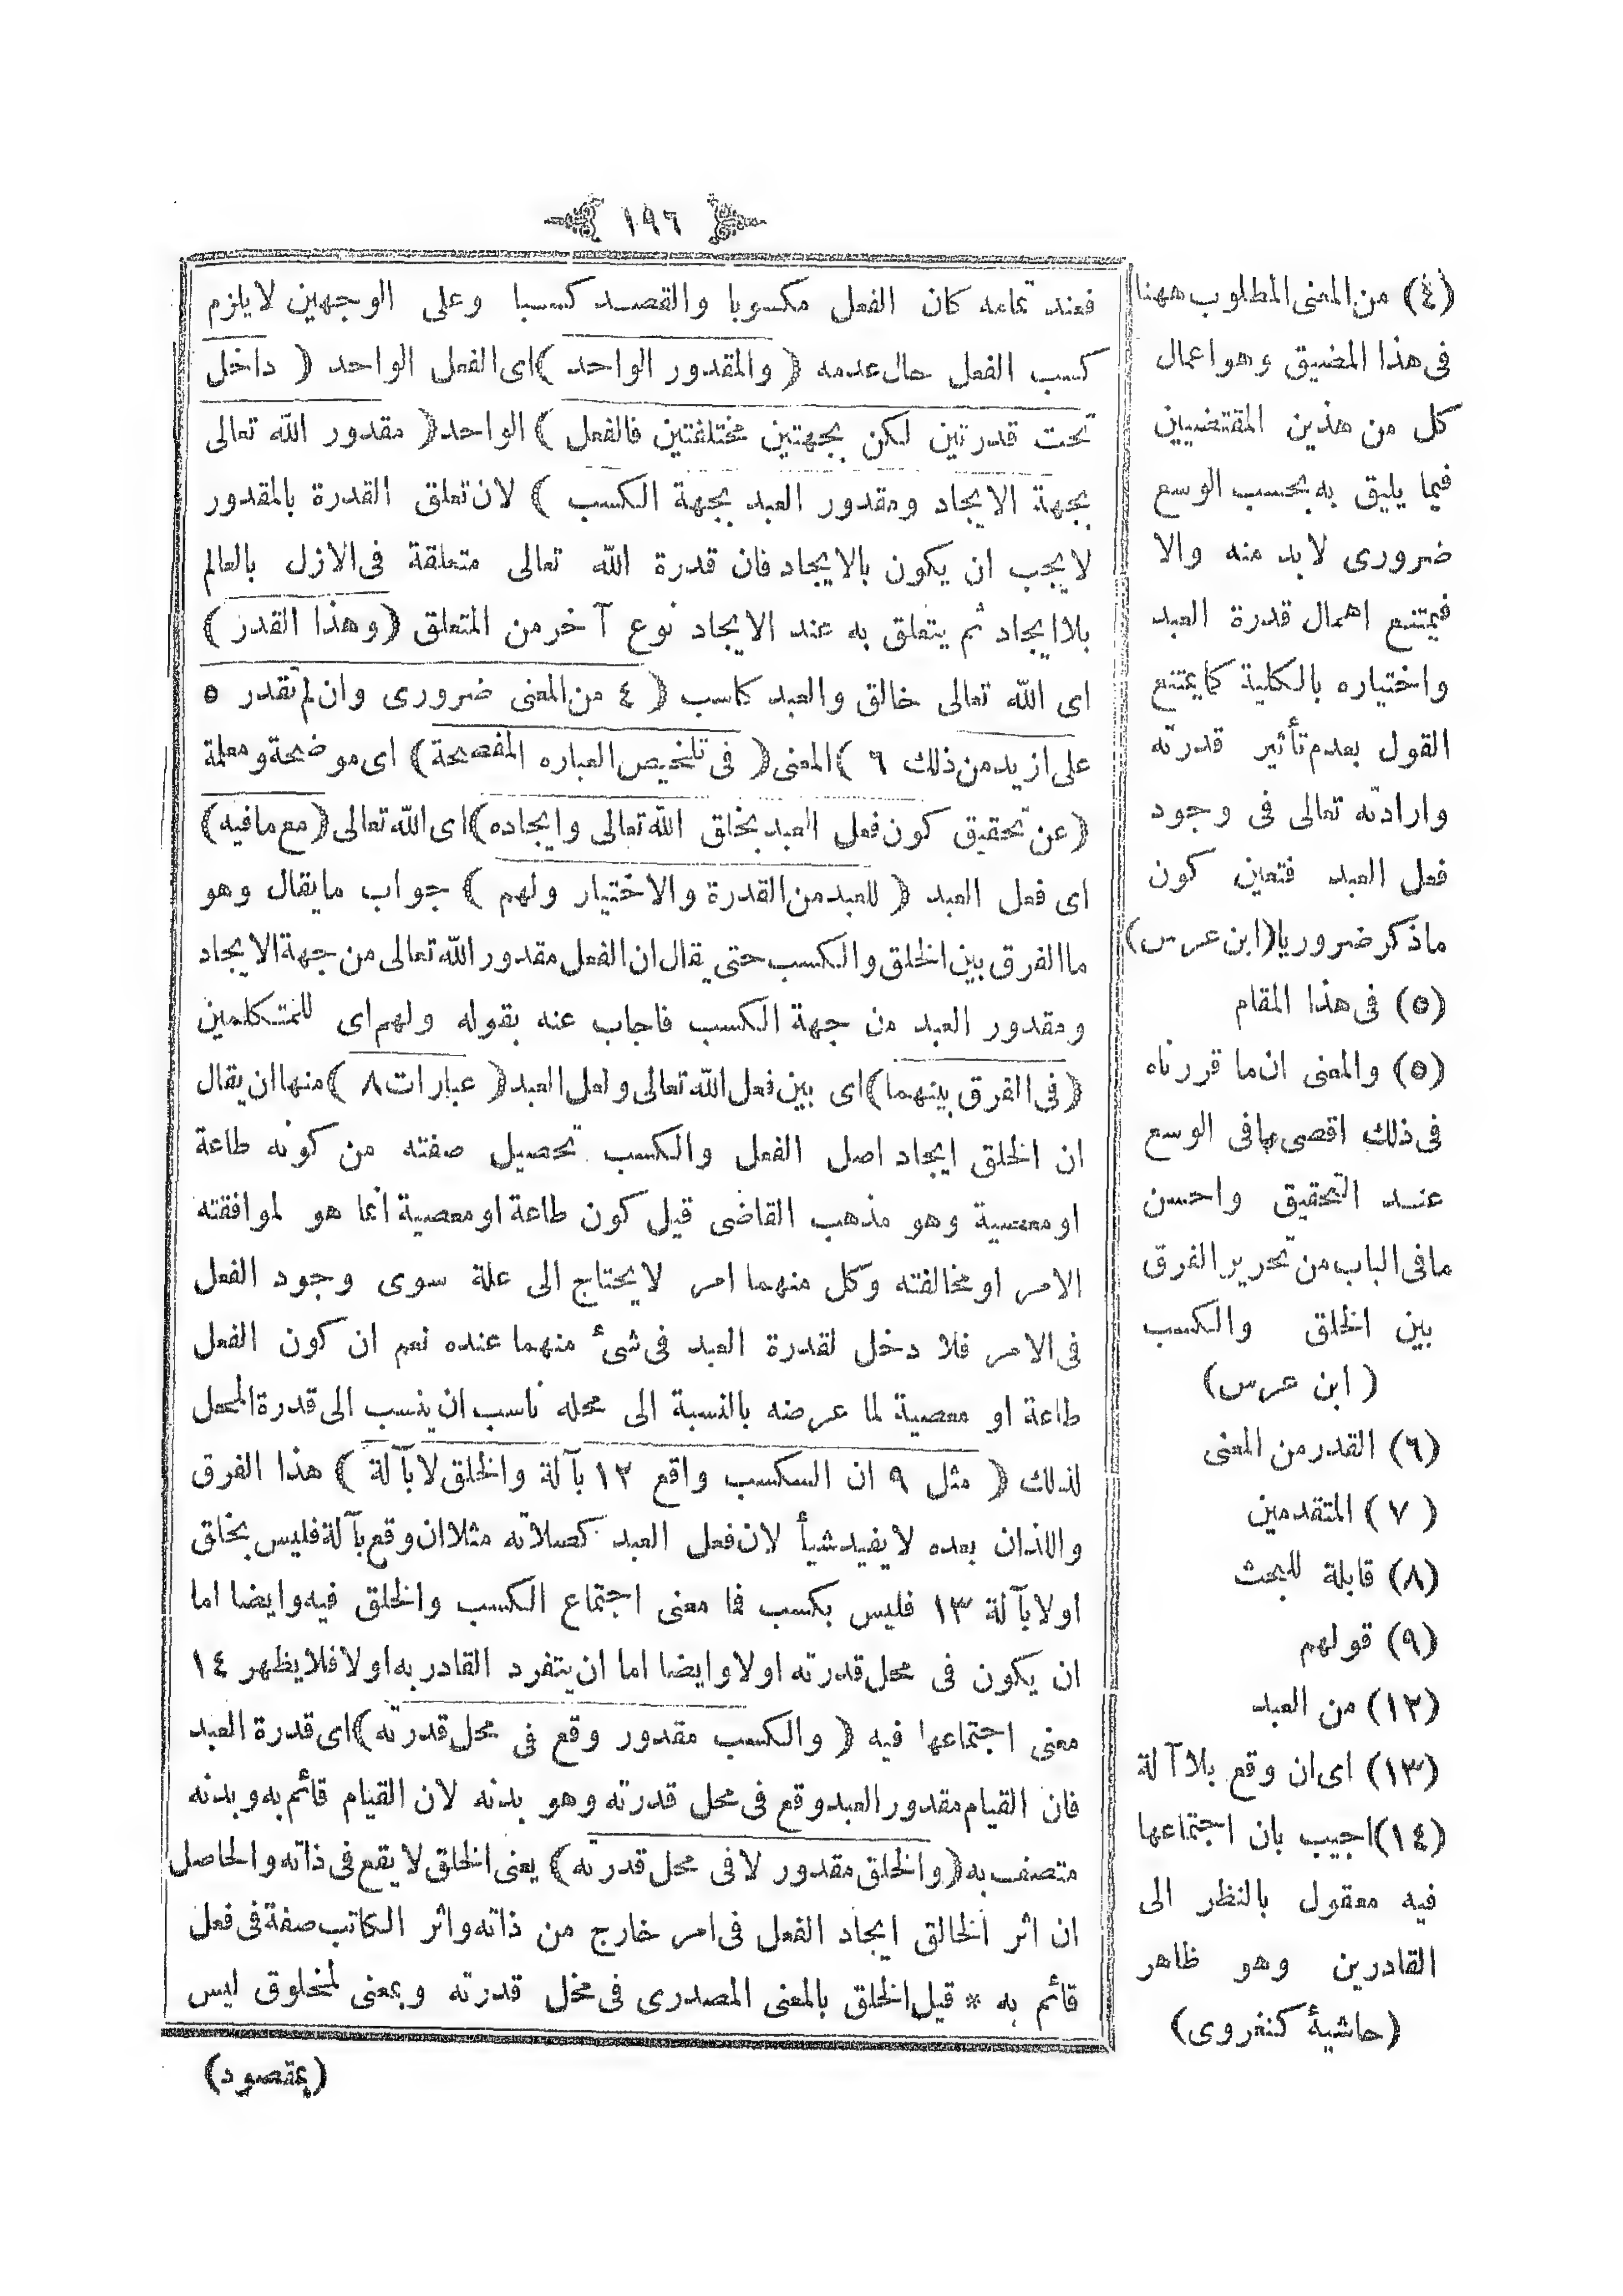 ١٩٦
فعند تمامه كان الفعل مكسوبا والقصد كسبا وعلى الوجهين لايلزم
كسب الفعل حال عدمه ( والمقدور الواحد ) اى الفعل الواحد ( داخل
تحت قدرتين لكن بجهتين مختلفتين فالفعل ) الواحد ( مقدور الله تعالى
بجهة الايجاد ومقدور العبد بجهة الكسب ) لان تعلق القدرة بالمقدور
لايجب ان يكون بالايجاد فان قدرة الله تعالى متعلقة فى الازل بالعالم
بلا ايجاد ثم يتعلق به عند الايجاد نوع آخر من المتعلق ( وهذا القدر )
اى الله تعالى خالق والعبد كاسب ( ٤ من المعنى ضرورى وان لم نقدر ٥
على ازيد من ذلك ٦ ) المعنى ( فى تلخيص العباره المفصحة ) اى موضحة ومعلمة
( عن تحقيق كون فعل العبد بخلق الله تعالى وايجاده ) اى الله تعالى ( مع مافيه )
اى فعل العبد ( للعبد من القدرة والاختيار ولهم ) جواب مايقال وهو
ما الفرق بين الخلق والكسب حتى يقال ان الفعل مقدور الله تعالى من جهة الايجاد
ومقدور العبد من جهة الكسب فاجاب عنه بقوله ولهم اى للمتكلمين
( فى الفرق بينهما ) اى بين فعل الله تعالى وفعل العبد ( عبارات ٨ ) منها ان يقال
ان الخلق ايجاد اصل الفعل والكسب تحصيل صفته من كونه طاعة
او معصية وهو مذهب القاضى قيل كون طاعة او معصية انما هو لموافقته
الامر او مخالفته وكل منهما امر لايحتاج الى علة سوى وجود الفعل
فى الامر فلا دخل لقدرة العبد فى شئ منهما عنده نعم ان كون الفعل
طاعة او معصية لما عرضه بالنسبة الى محله ناسب ان ينسب الى قدرة المحل
لذلك ( مثل ٩ ان الكسب واقع ١٢ بآلة والخلق لابآلة ) هذا الفرق
واللذان بعده لايفيد شيأ لان فعل العبد كصلاته مثلا ان وقع بآلة فليس بخلق
اولا بآلة ١٣ فليس بكسب فما معنى اجتماع الكسب والخلق فيه وايضا اما
ان يكون فى محل قدرته اولا وايضا اما ان يتفرد القادر به اولا فلايظهر ١٤
معنى اجتماعها فيه ( والكسب مقدور وقع فى محل قدرته ) اى قدرة العبد
فان القيام مقدور العبد وقع فى محل قدرته وهو بدنه لان القيام قائم به وبدنه
متصف به ( والخلق مقدور لافى محل قدرته ) يعنى الخلق لايقع فى ذاته والحاصل
ان اثر الخالق ايجاد الفعل فى امر خارج من ذاته واثر الكاتب صفة فى فعل
قائم به * قيل الخلق بالمعنى المصدرى فى محل قدرته وبمعنى لمخلوق ليس
(بمقصود)
(٤) من المعنى المطلوب ههنا
فى هذا المضيق وهو اعمال
كل من هذين المقتضيين
فيما يليق به بحسب الوسع
ضرورى لابد منه والا
فيمتنع اهمال قدرة العبد
واختياره بالكلية كما يمتنع
القول بعدم تأثير قدرته
وارادته تعالى فى وجود
فعل العبد فتعين كون
ماذكر ضروريا (ابن عرس)
(٥) فى هذا المقام
(٥) والمعنى ان ما قررناه
فى ذلك اقصى مافى الوسع
عند التحقيق واحسن
مافى الباب من تحرير الفرق
بين الخلق والكسب
( ابن عرس)
(٦) القدر من المعنى
( ٧ ) المتقدمين
(٨) قابلة للبحث
(٩) قولهم
(١٢) من العبد
(١٣) اى ان وقع بلا آلة
(١٤) اجيب بان اجتماعها
فيه معقول بالنظر الى
القادرين وهو ظاهر
(حاشيۀ كنغروى)